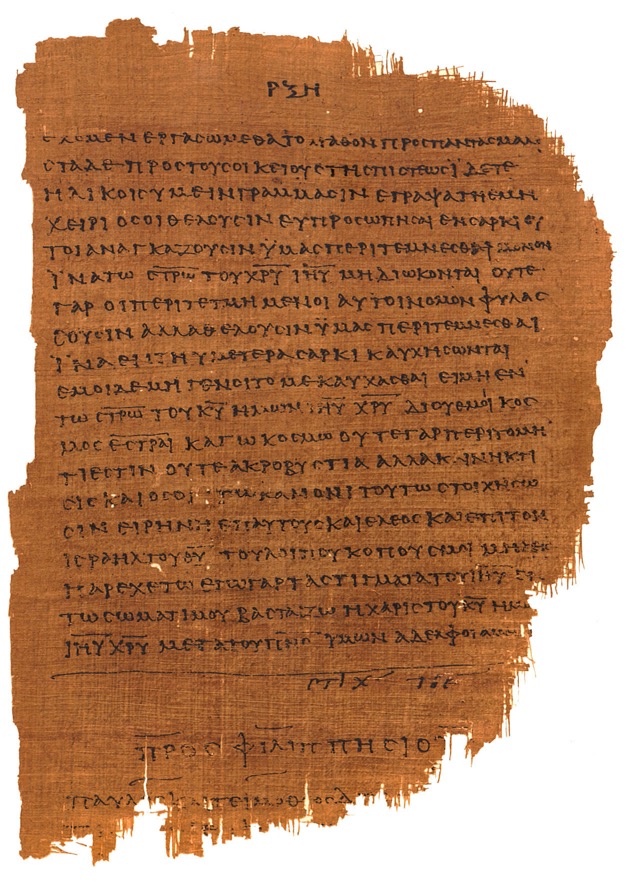 ΡΞΗ
Ε ΧΟΜΕΝ ΕΡΓΑϹΩΜΕΘΑ ΤΟ ΑΓΑΘΟΝ ΠΡΟϹ ΠΑΝΤΑϹ ΜΑΛΙ
ϹΤΑ ΔΕ ΠΡΟϹ ΤΟΥϹ ΟΙΚΕΙΟΥϹ ΤΗϹ ΠΙϹΤΕΩϹ ΪΔΕΤΕ
ΗΛΙΚΟΙϹ ΥΜΕΙΝ ΓΡΑΜΜΑϹΙΝ ΕΓΡΑΨΑ ΤΗ ΕΜΗ
ΧΕΙΡΙ ΟϹΟΙ ΘΕΛΟΥϹΙΝ ΕΥΠΡΟϹΩΠΗϹΑΙ ΕΝ ϹΑΡΚΙ ΟΥ
ΤΟΙ ΑΝΑΓΚΑΖΟΥϹΙΝ ΫΜΑϹ ΠΕΡΙΤΕΜΝΕϹΘΑΙ ΜΟΝΟΝ
ΪΝΑ ΤΩ Ϲ̅Τ̅Ρ̅Ω̅ ΤΟΥ Χ̅Ρ̅Υ̅ Ι̅Η̅Υ̅ ΜΗ ΔΙΩΚΟΝΤΑΙ ΟΥΤΕ
ΓΑΡ ΟΙ ΠΕΡΙΤΕΤΜΗΜΕΝΟΙ ΑΥΤΟΙ ΝΟΜΟΝ ΦΥΛΑϹ
ϹΟΥϹΙΝ ΑΛΛΑ ΘΕΛΟΥϹΙΝ ΫΜΑϹ ΠΕΡΙΤΕΜΝΕϹΘΑΙ
ΪΝΑ ΕΝ ΤΗ ΥΜΕΤΕΡΑ ϹΑΡΚΙ ΚΑΥΧΗϹΩΝΤΑΙ
ΕΜΟΙ ΔΕ ΜΗ ΓΕΝΟΙΤΟ ΜΕ ΚΑΥΧΑϹΘΑΙ ΕΙ ΜΗ ΕΝ
ΤΩ Ϲ̅Τ̅Ρ̅Ω̅ ΤΟΥ Κ̅Υ̅ ΗΜΩΝ Ι̅Η̅Υ̅ Χ̅Ρ̅Υ̅ ΔΙ ΟΥ ΕΜΟΙ ΚΟϹ
ΜΟϹ Ε̅Ϲ̅Τ̅Ρ̅Α̅Ι̅ ΚΑΓΩ ΚΟϹΜΩ ΟΥΤΕ ΓΑΡ ΠΕΡΙΤΟΜΗ
ΤΙ ΕϹΤΙΝ ΟΥΤΕ ΑΚΡΟΒΥϹΤΙΑ ΑΛΛΑ ΚΑΙΝΗ ΚΤΙ
ϹΙϹ ΚΑΙ ΟϹΟΙ ΤΩ ΚΑΝΟΝΙ ΤΟΥΤΩ ϹΤΟΙΧΗϹΩ
ϹΙΝ ΕΙΡΗΝΗ ΕΠ ΑΥΤΟΥϹ ΚΑΙ ΕΛΕΟϹ ΚΑΙ ΕΠΙ ΤΟΝ
ΙϹΡΑΗΛ ΤΟΥ Θ̅Υ̅ ΤΟΥ ΛΟΙΠΟΥ ΚΟΠΟΥϹ ΜΟΙ ΜΗΔΕΙϹ
ΠΑΡΕΧΕΤΩ ΕΓΩ ΓΑΡ ΤΑ ϹΤΙΓΜΑΤΑ ΤΟΥ Ι̅Η̅Υ̅ ΕΝ
ΤΩ ϹΩΜΑΤΙ ΜΟΥ ΒΑϹΤΑΖΩ Η ΧΑΡΙϹ ΤΟΥ Κ̅Υ̅ ΗΜ
Ι̅Η̅Υ̅ Χ̅Ρ̅Υ̅ ΜΕΤΑ ΤΟΥ Π̅Ν̅Ϲ̅ ΥΜΩΝ ΑΔΕΛΦΟΙ ΑΜ
ϹΤΙΧ ΤΟΕ
ΠΡΟϹ ΦΙΛΙΠΠΗϹΙΟΥ
ΠΑΥΛΟϹ ΚΑΙ ΤΕΙΜΟΘΕΟϹ Δ